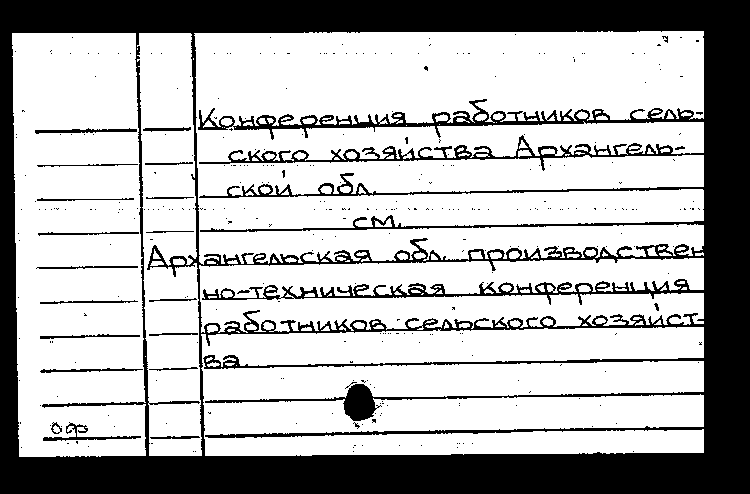 Конференция работников сель-
ского хозяйства Архангель-
ской обл.
см.
Архангельская обл. производствен
но-техническая конференция
работников сельского хозяйст-
ва.
офр